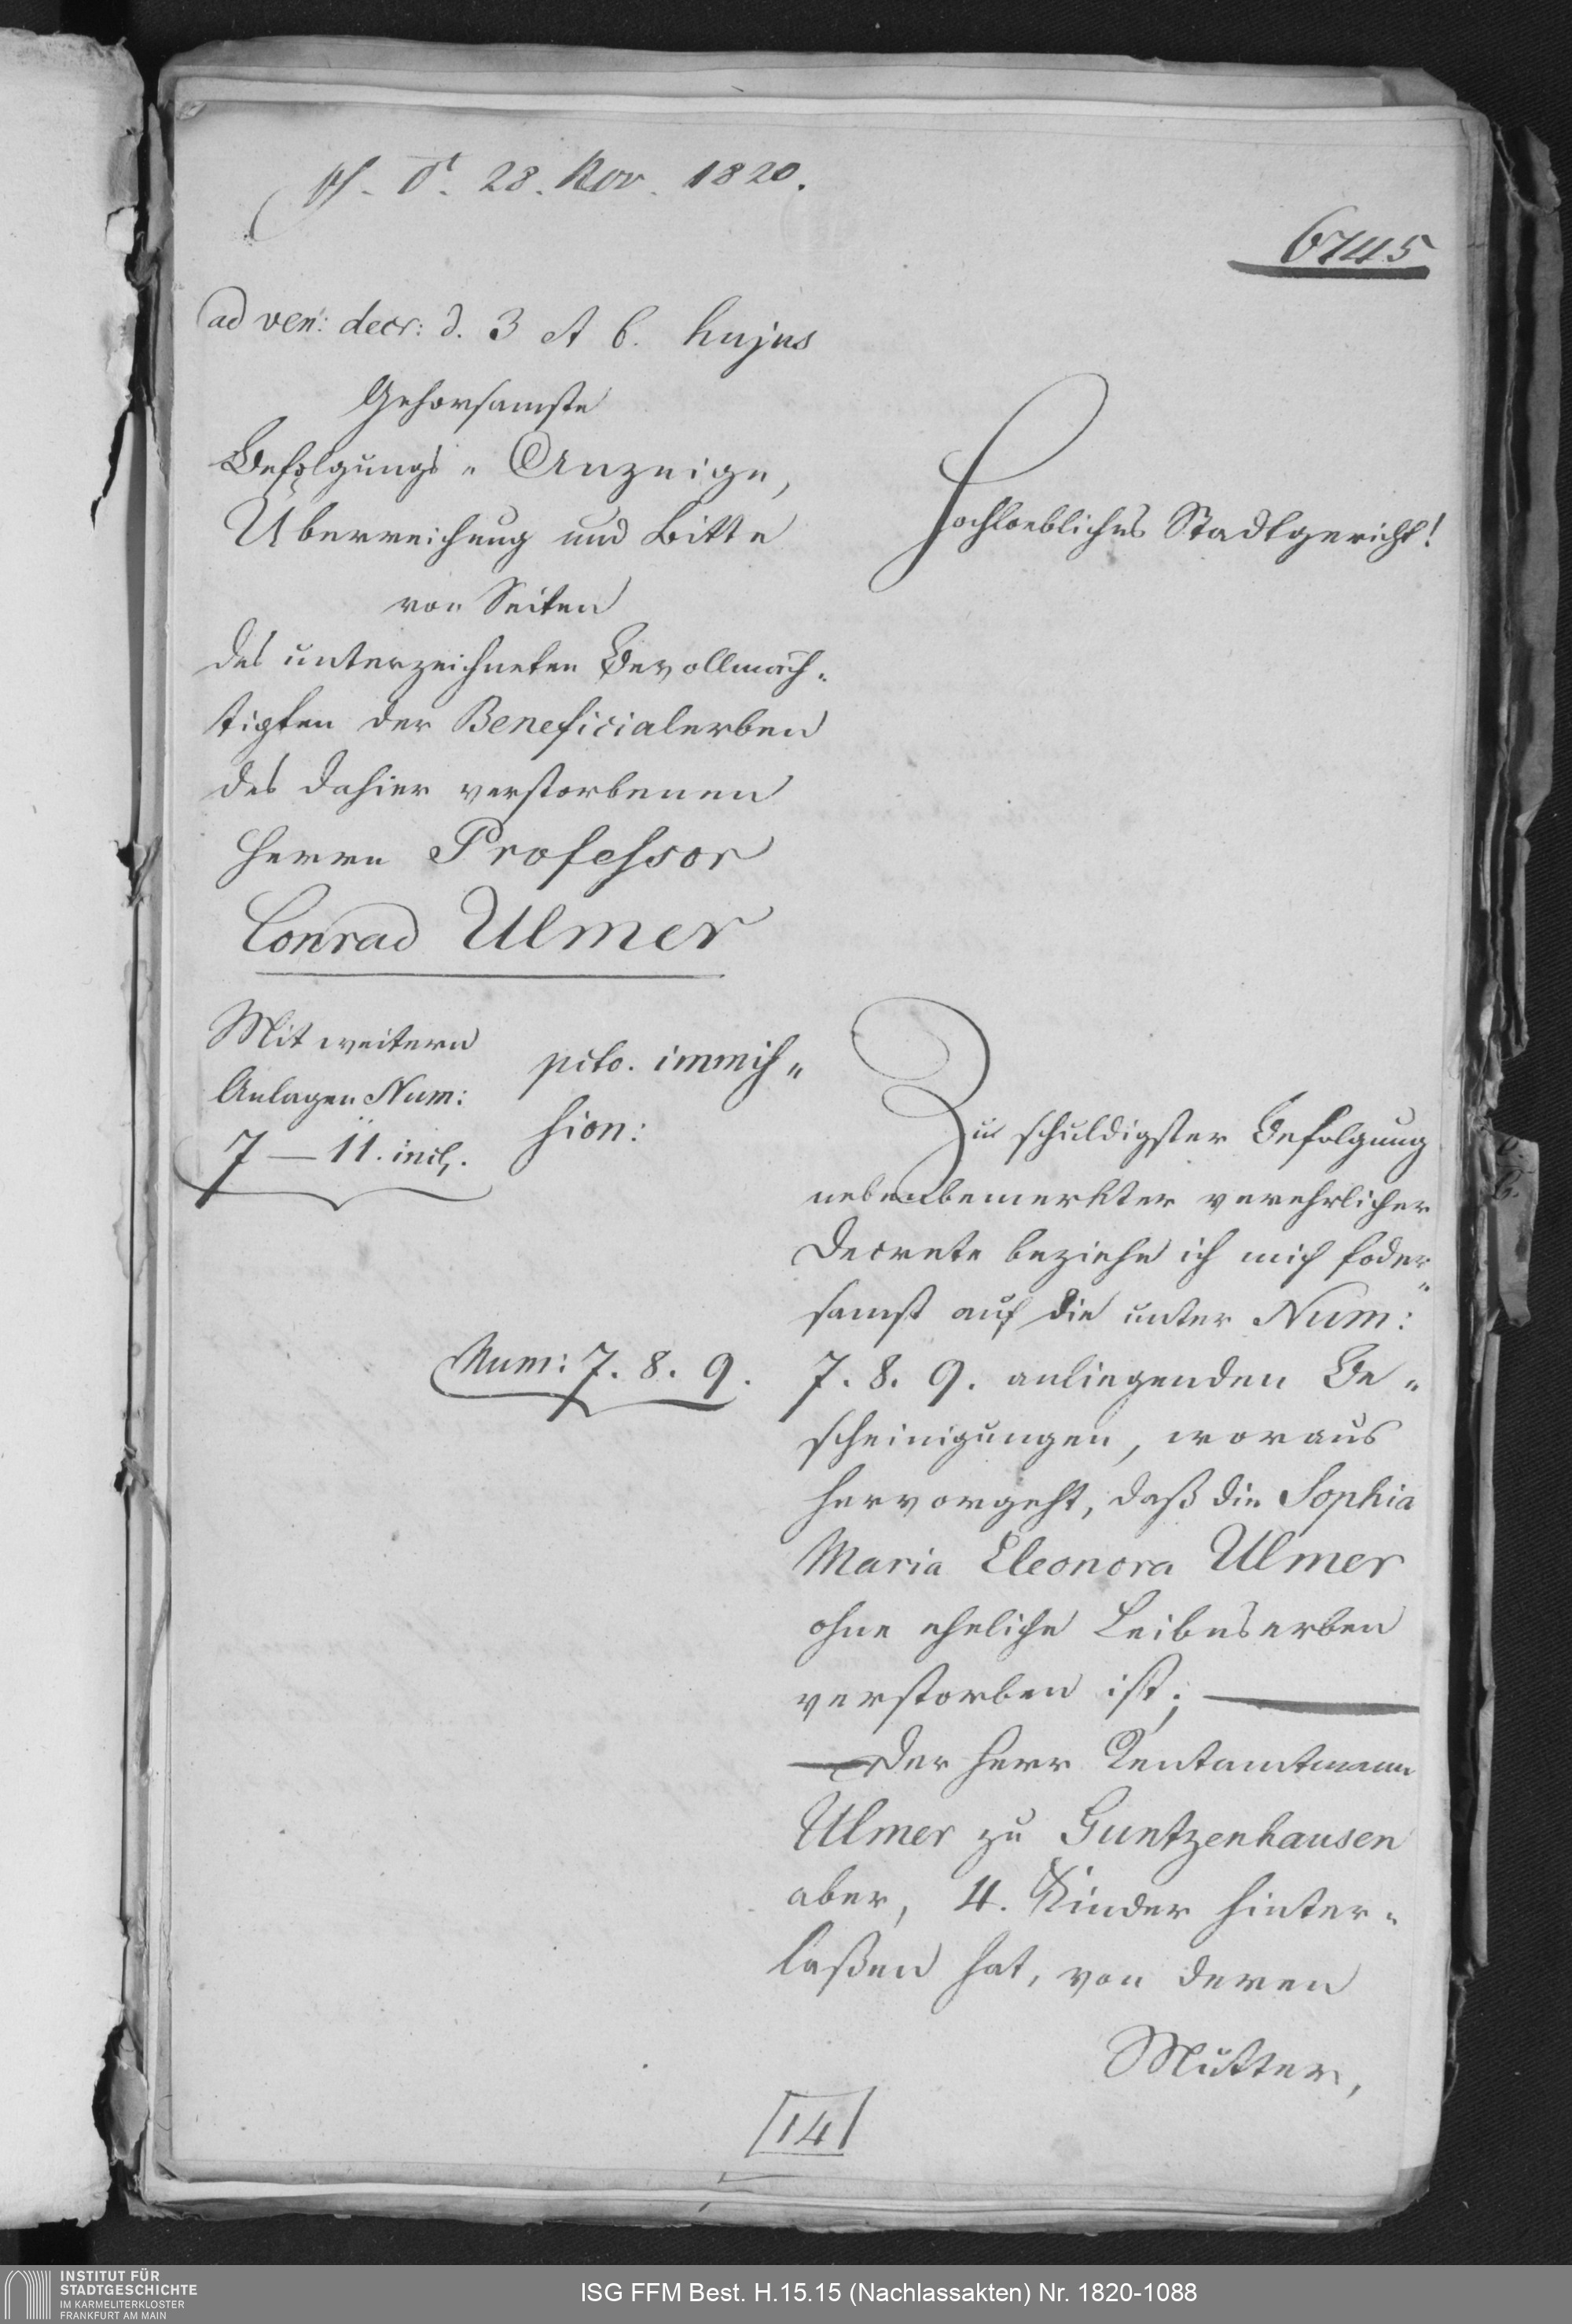 ps. Dt. 28. Nov. 1820.
6745
ad ven: decr: d. 3 et 6. hujus
Gehorsamste
Befolgungs-Anzeige,
Überreichung und Bitte
von Seiten
des unterzeichneten Bevollmäch-
tigten der Beneficialerben
des dahier verstorbenen
Herrn Professor
Conrad Ulmer
Mit weitern
Anlagen Num:
7 — 11. incl.
pcto. immis-
sion:
Hochloebliches Stadtgericht!
Zu schuldigster Befolgung
nebenbemerkter verehrlicher
Decrete beziehe ich mich foder-
samst auf die unter Num:
Num: 7. 8. 9.
7. 8. 9. anliegenden Be-
scheinigungen, woraus
hervorgeht, daß die Sophia
Maria Eleonora Ulmer
ohne eheliche Leibeserben
verstorben ist; —
— Der Herr Rentamtmann
Ulmer zu Guntzenhausen
aber, 4. Kinder hinter-
laßen hat, von deren
Mutter,
14
INSTITUT FÜR
STADTGESCHICHTE
IM KARMELITERKLOSTER
FRANKFURT AM MAIN
ISG FFM Best. H.15.15 (Nachlassakten) Nr. 1820-1088